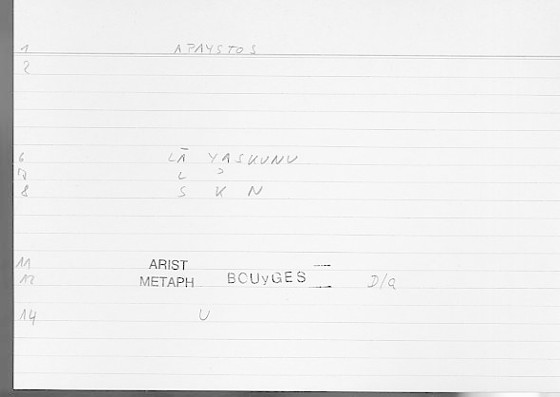 1 APAYSTOS
2
6 LĀ YASKUNU
7 L ʾ
8 S K N
11 ARIST
12 METAPH BOUyGES D/a
14 U